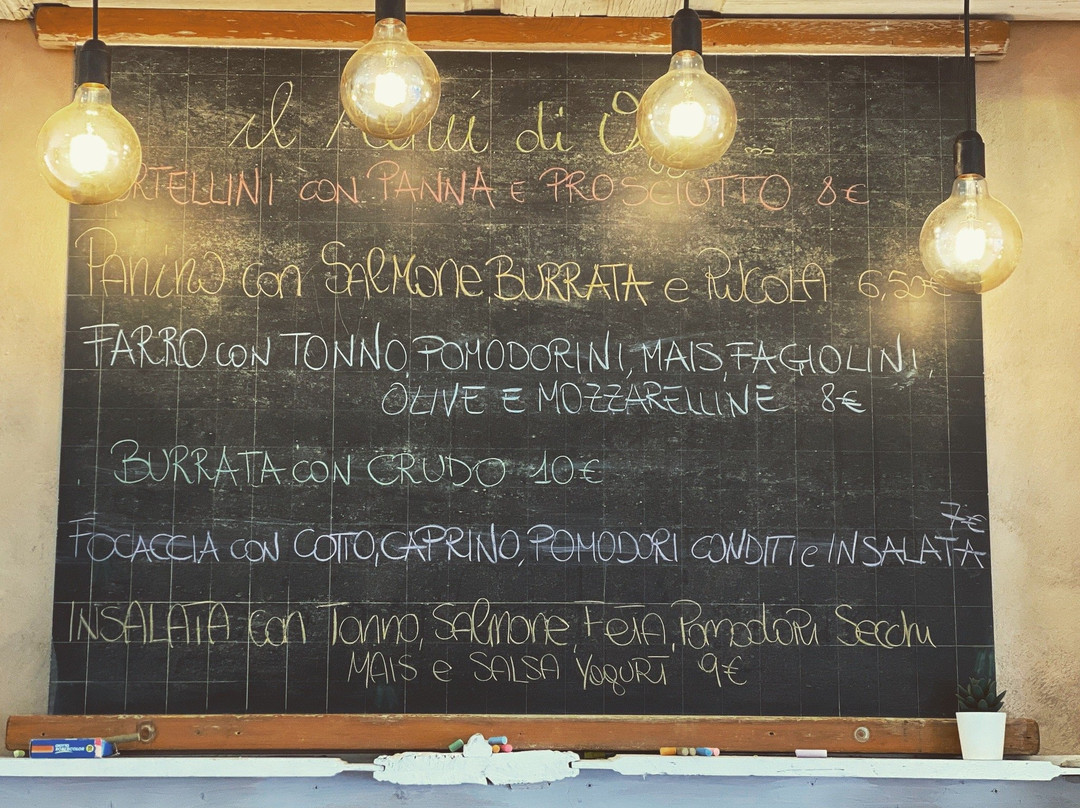 il Menú di Oggi...
TORTELLINI con PANNA e PROSCIUTTO 8€
PANINO con SALMONE, BURRATA e RUCOLA 6,50€
FARRO con TONNO, POMODORINI, MAIS, FAGIOLINI,
OLIVE E MOZZARELLINE 8€
BURRATA con CRUDO 10€
7€
FOCACCIA con COTTO, CAPRINO, POMODORI CONDITI e INSALATA
INSALATA con Tonno, SALMONE, FETA, Pomodori Secchi
MAIS e SALSA YOGURT 9€